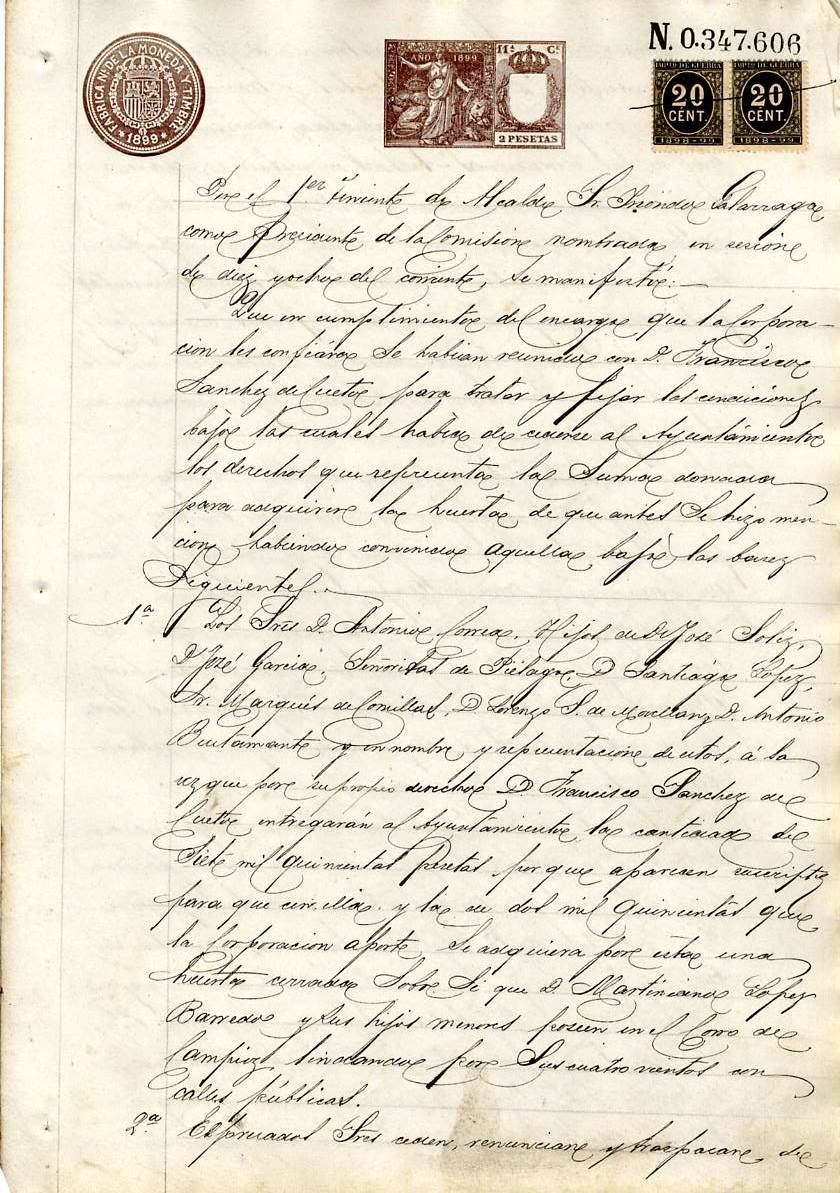 FABRICA NL DE LA MONEDA Y TIMBRE
1899
AÑO 1899
11ª Cl.
2 PESETAS
N. 0.347.606
IMPTO DE GUERRA
20
CENT.
1898-99
IMPTO DE GUERRA
20
CENT.
1898-99
Por el 1er Teniente de Alcalde Sr. Galarraga
como Presidente de la Comisión nombrada en sesión
de diez y ocho del corriente, se manifestó:
Que en cumplimiento del encargo que la Corpora-
cion les confiára se habian reunido con D. Francisco
Sanchez de Cueto para tratar y fijar las condiciones
bajo las cuales había de cederse al Ayuntamiento
los derechos que representa la suma donada
para adquirir la huerta de que antes se hizo men-
cion, habiendo convenido aquella bajo las bases
siguientes.
1ª Los Sres D. Antonio Correa, Hijos de D. José Soliz,
D José Garcia, Señoritas de Piélago, D Santiago Lopez,
Sr. Marqués de Comillas, D Lorenzo S. de Movellan, D. Antonio
Bustamante y en nombre y representacion de estos, á la
vez que por su propio derecho D. Francisco Sanchez de
Cueto entregarán al Ayuntamiento la cantidad de
siete mil quinientas pesetas porque aparecen suscriptos
para que con ella y la de dos mil quinientas que
la Corporacion aporte, se adquiera por esta una
huerta cerrada sobre si que D. Martiniano Lopez
Barredo y sus hijos menores poseen en el Corro de
Campios, lindando por sus cuatro vientos con
calles públicas.
2ª Expresados Sres ceden, renuncian y traspasan, de